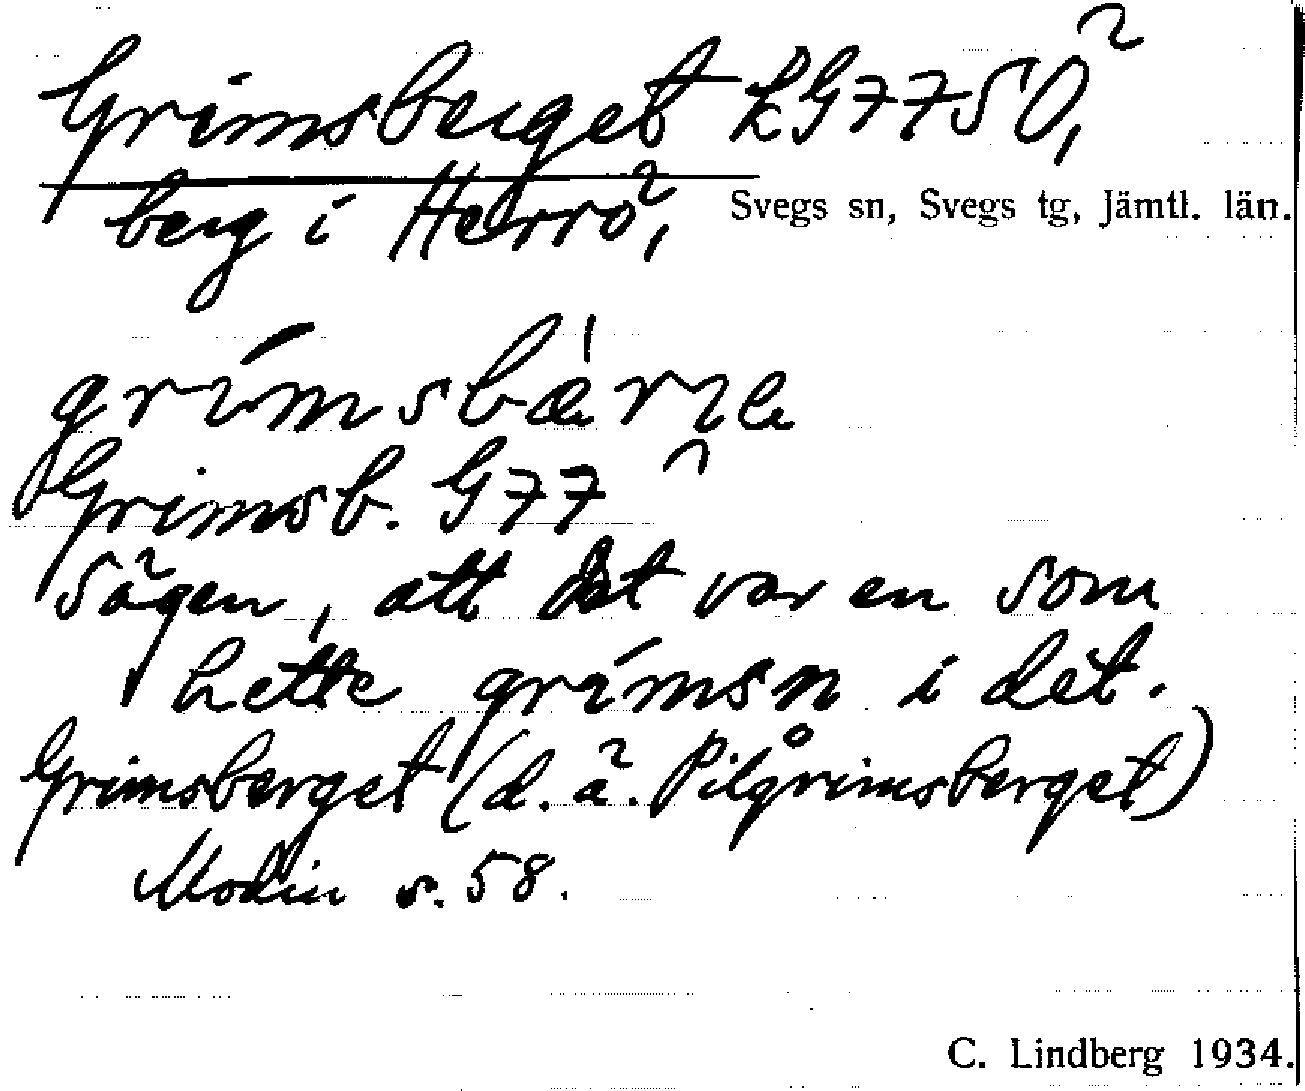 Grimsberget kG77SÖ,
berg i Herrö, Svegs sn, Svegs tg, Jämtl. län.
grímsbæ̍rɪe
Grimsb. G77
Sägen, att det var en som
hette grímsn i det.
Grimsberget (d. ä. Pilgrimsberget)
Modin s. 58.
C. Lindberg 1934.